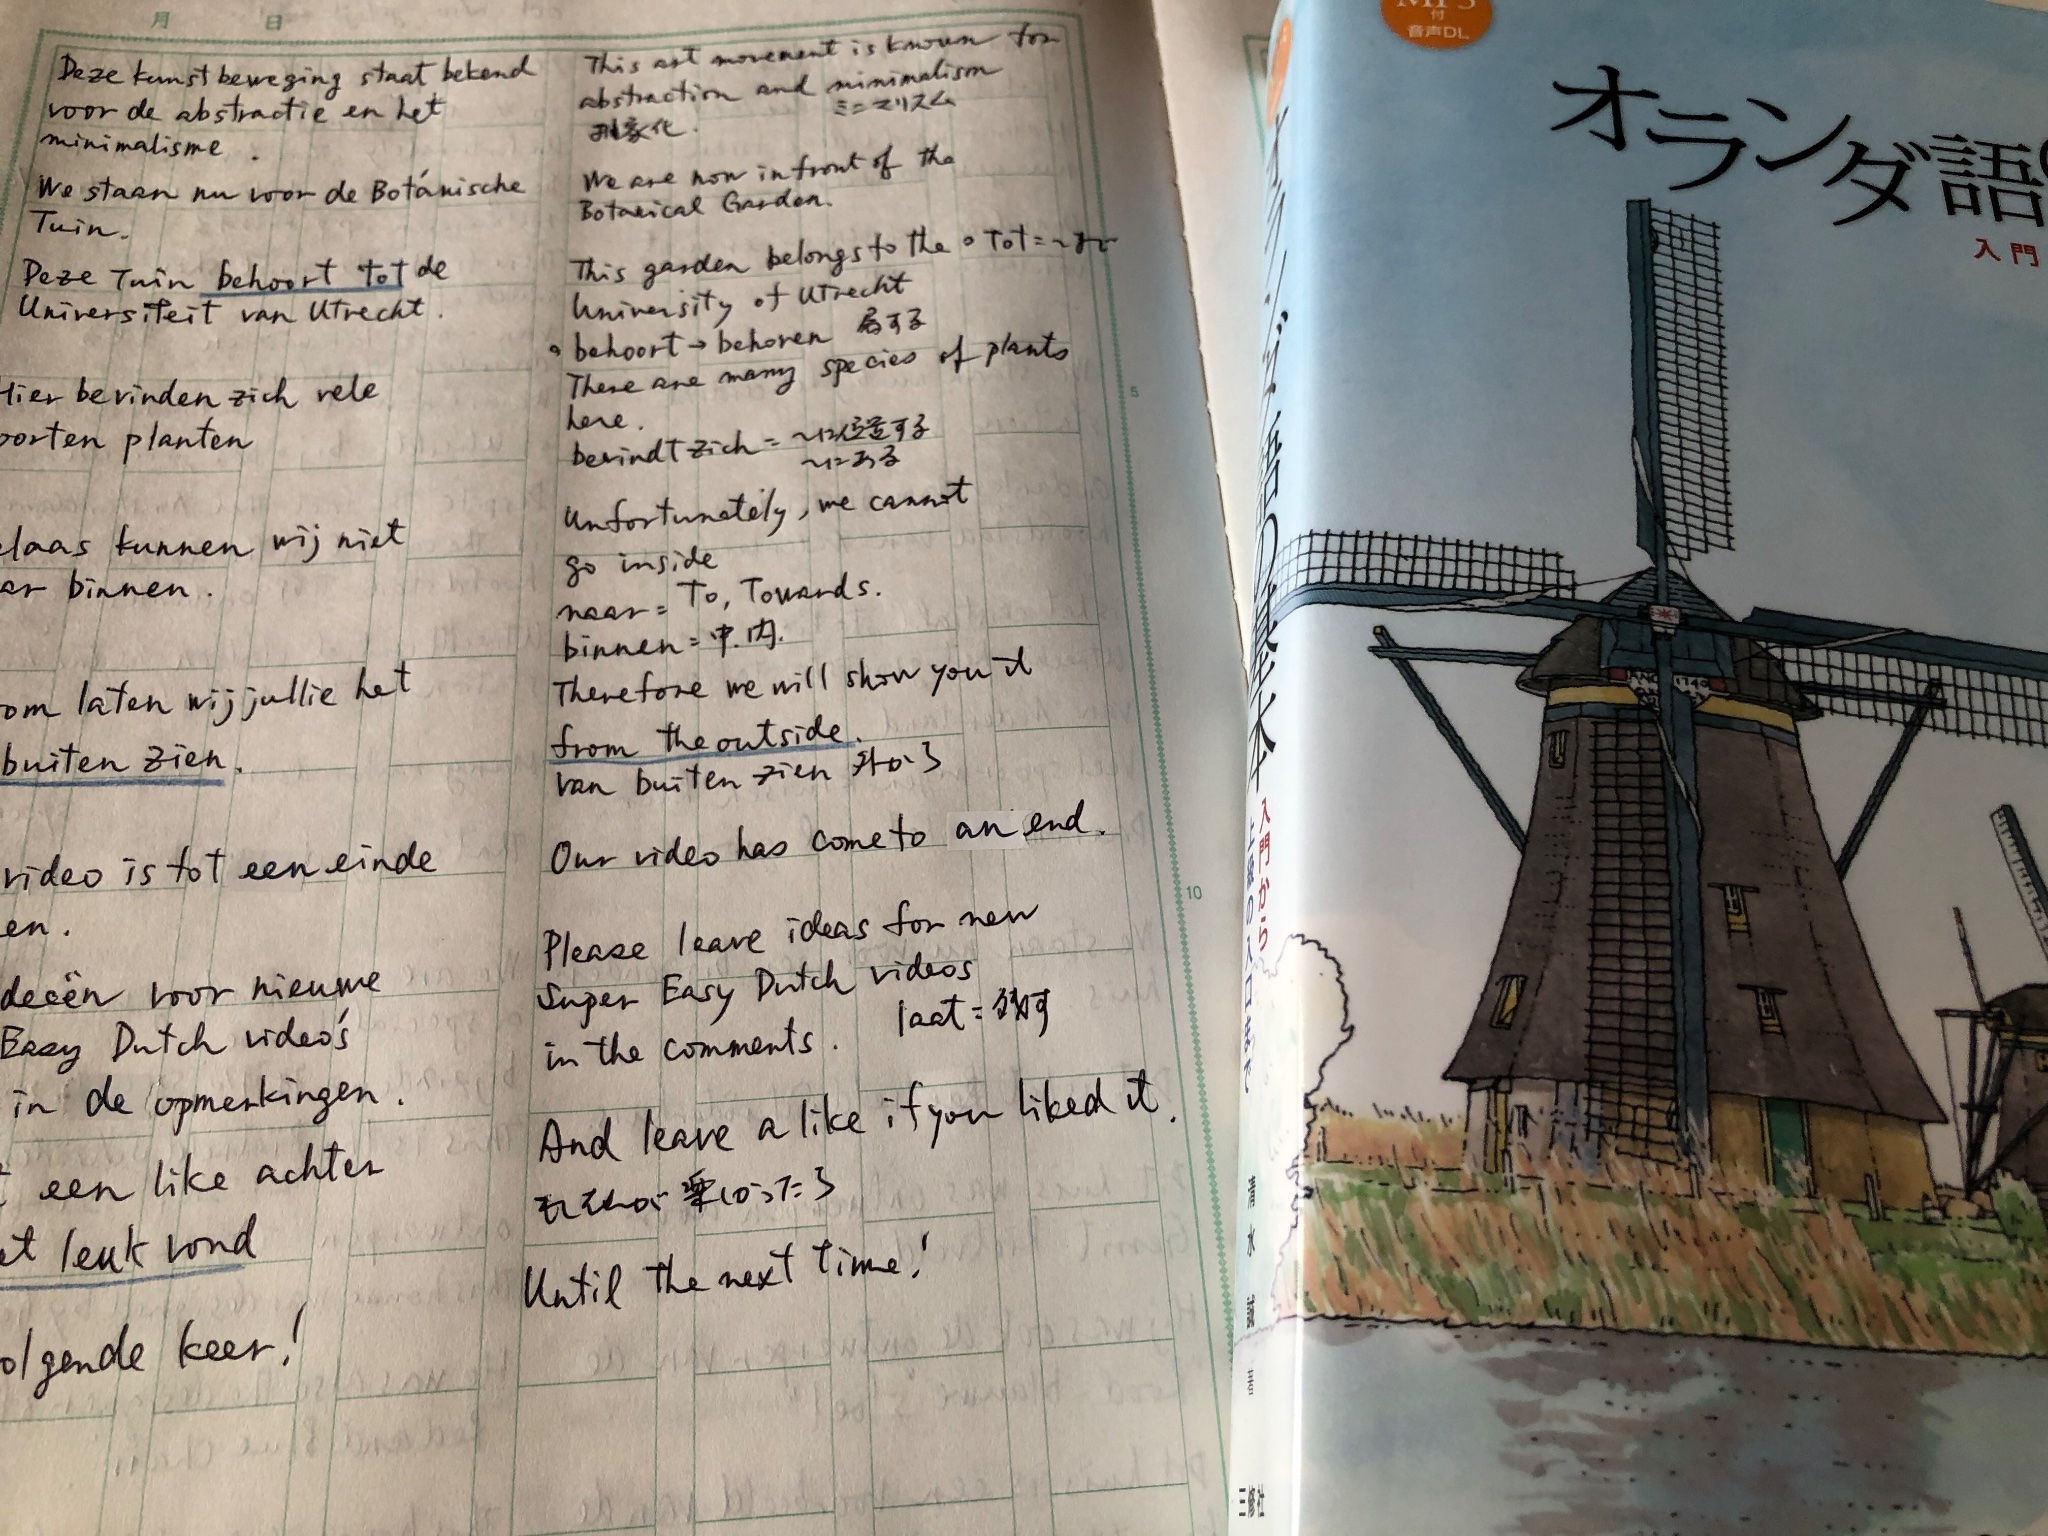 月 日
Deze kunstbeweging staat bekend
voor de abstractie en het
minimalisme.
We staan nu voor de Botánische
Tuin.
Deze Tuin behoort tot de
Universiteit van Utrecht.
Hier bevinden zich vele
oorten planten
elaas kunnen wij niet
ar binnen.
om laten wij jullie het
buiten zien.
video is tot een einde
en.
deeën voor nieuwe
Easy Dutch video's
in de opmerkingen.
t een like achter
et leuk vond
olgende keer!
This art movement is known for
abstraction and minimalism
ミニマリズム
We are now in front of the
Botanical Garden.
This garden belongs to the • Tot =
University of Utrecht
• behoort → behoren 属する
There are many species of plants
here.
bevindt zich = 〜に位置する
〜にある
Unfortunately, we cannot
go inside
naar = To, Towards.
binnen = 中.内.
Therefore we will show you it
from the outside.
van buiten zien 外から
Our video has come to an end.
Please leave ideas for new
Super Easy Dutch videos
laat = 残す
in the comments.
And leave a like if you liked it.
Until the next time!
5
10
MP3
付
音声DL
オランダ語の
入門
オランダ語の基本
入門から
三修社